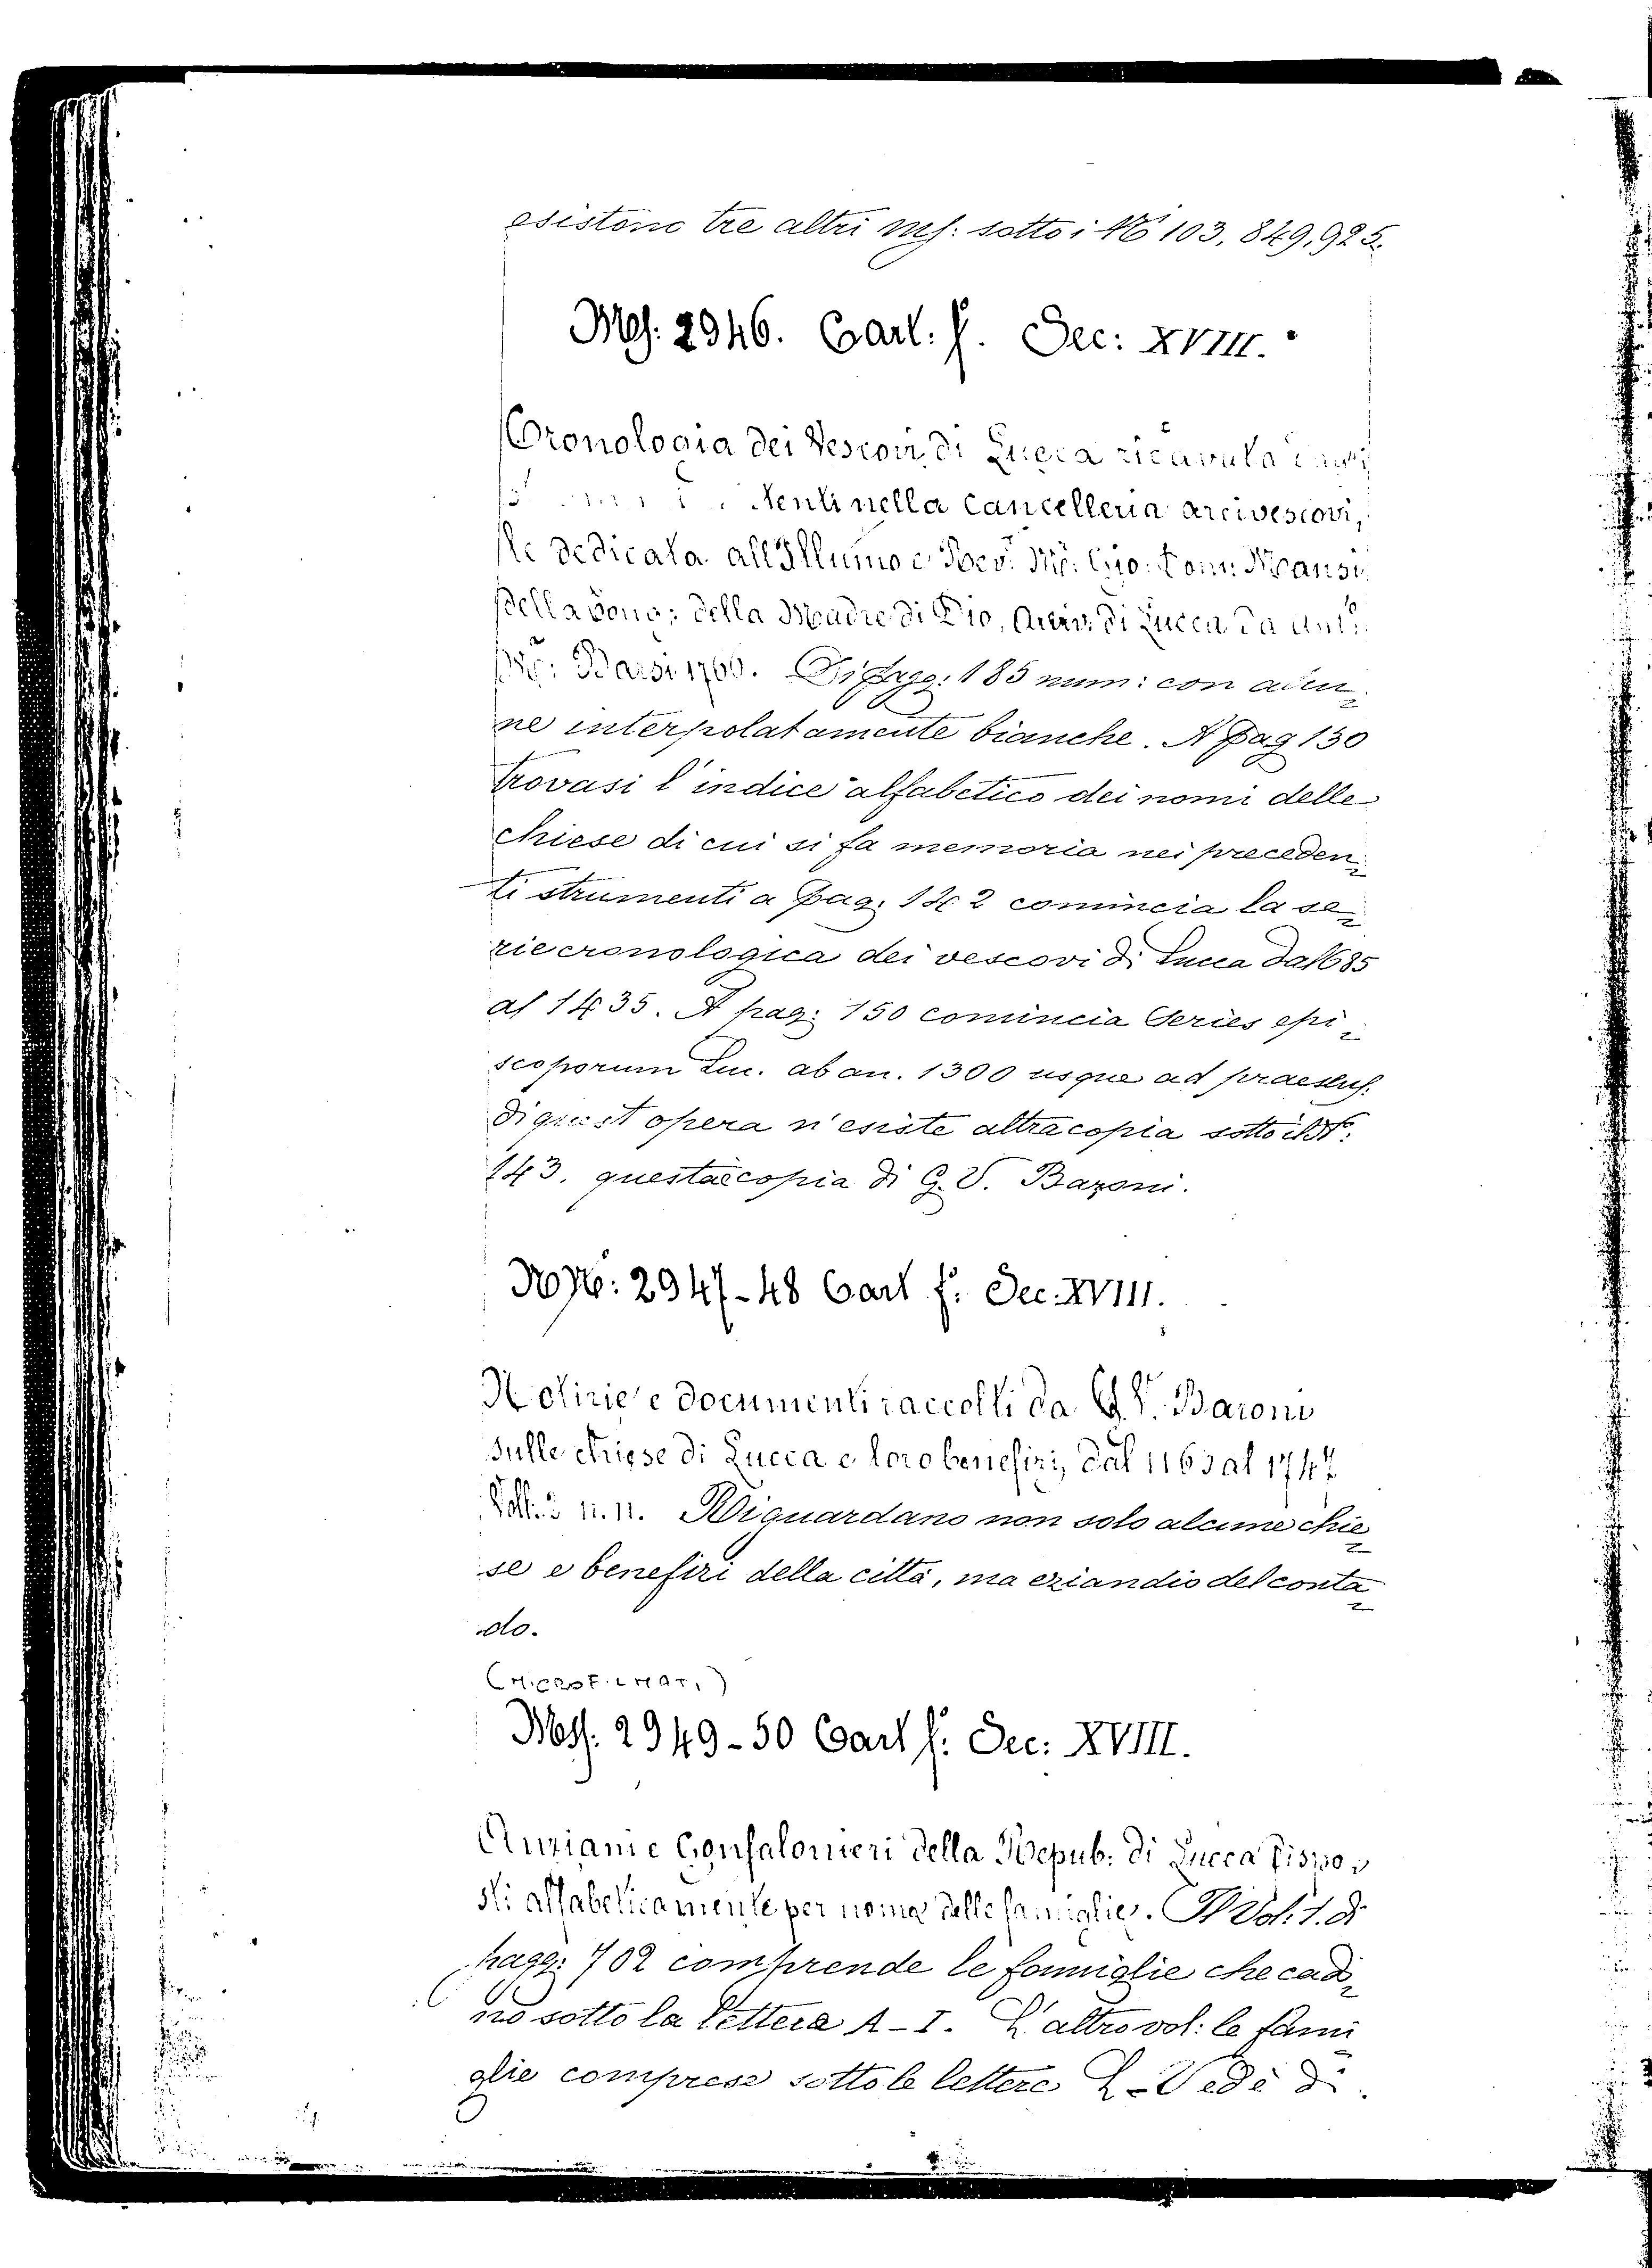 esistono tre altri ms: sotto i N.i 103, 849, 925.
Ms: 2946. Cart: f. Sec: XVIII.
Cronologia dei Vescovi di Lucca ricavata
nella Cancelleria arcivescovi,
le dedicata all'Illumo e Rev. Mr. Gio: Dom: Mansi
della Cong: della Madre di Dio, Arciv. di Lucca da Ant:
1760. Di pagg: 185 num: con alcu,
ne interpolatamente bianche. A pag 130
trovasi l'indice alfabetico dei nomi delle
chiese di cui si fa memoria nei preceden,
ti strumenti a pag: 142 comincia la se,
rie cronologica dei vescovi di Lucca dal 685
al 1435. A pag: 150 comincia Series epi,
scoporum Luc. ab an. 1300 usque ad praesens.
di quest opera n'esiste altra copia sotto il N.
143. questa è copia di G. V. Baroni.
NN: 2947-48 Cart f: Sec. XVIII.
Notizie e documenti raccolti da G. V. Baroni
sulle chiese di Lucca e loro benefizi, dal 1163 al 1747
Voll. 2 n. n. Riguardano non solo alcune chie,
se e benefizi della città, ma eziandio del conta,
do.
(MICROFILMAT.)
Mss. 2949-50 Cart f: Sec: XVIII.
Anziani e Gonfalonieri della Repub: di Lucca dispo,
sti alfabeticamente per nome delle famiglie. Il Vol: 1. di
pagg: 702 comprende le famiglie che cado,
no sotto la lettera A-I. L'altro vol: le fami
glie comprese sotto le lettere L-V edè di